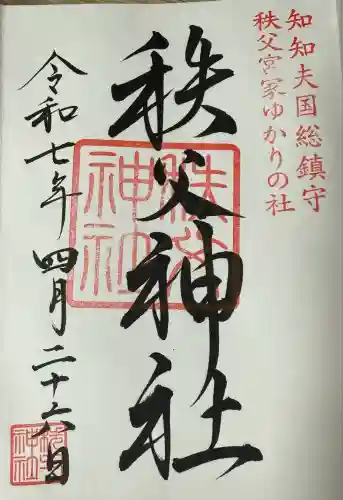 知知夫国総鎮守
秩父宮家ゆかりの社
秩父神社
秩父
神社
令和七年四月二十六日